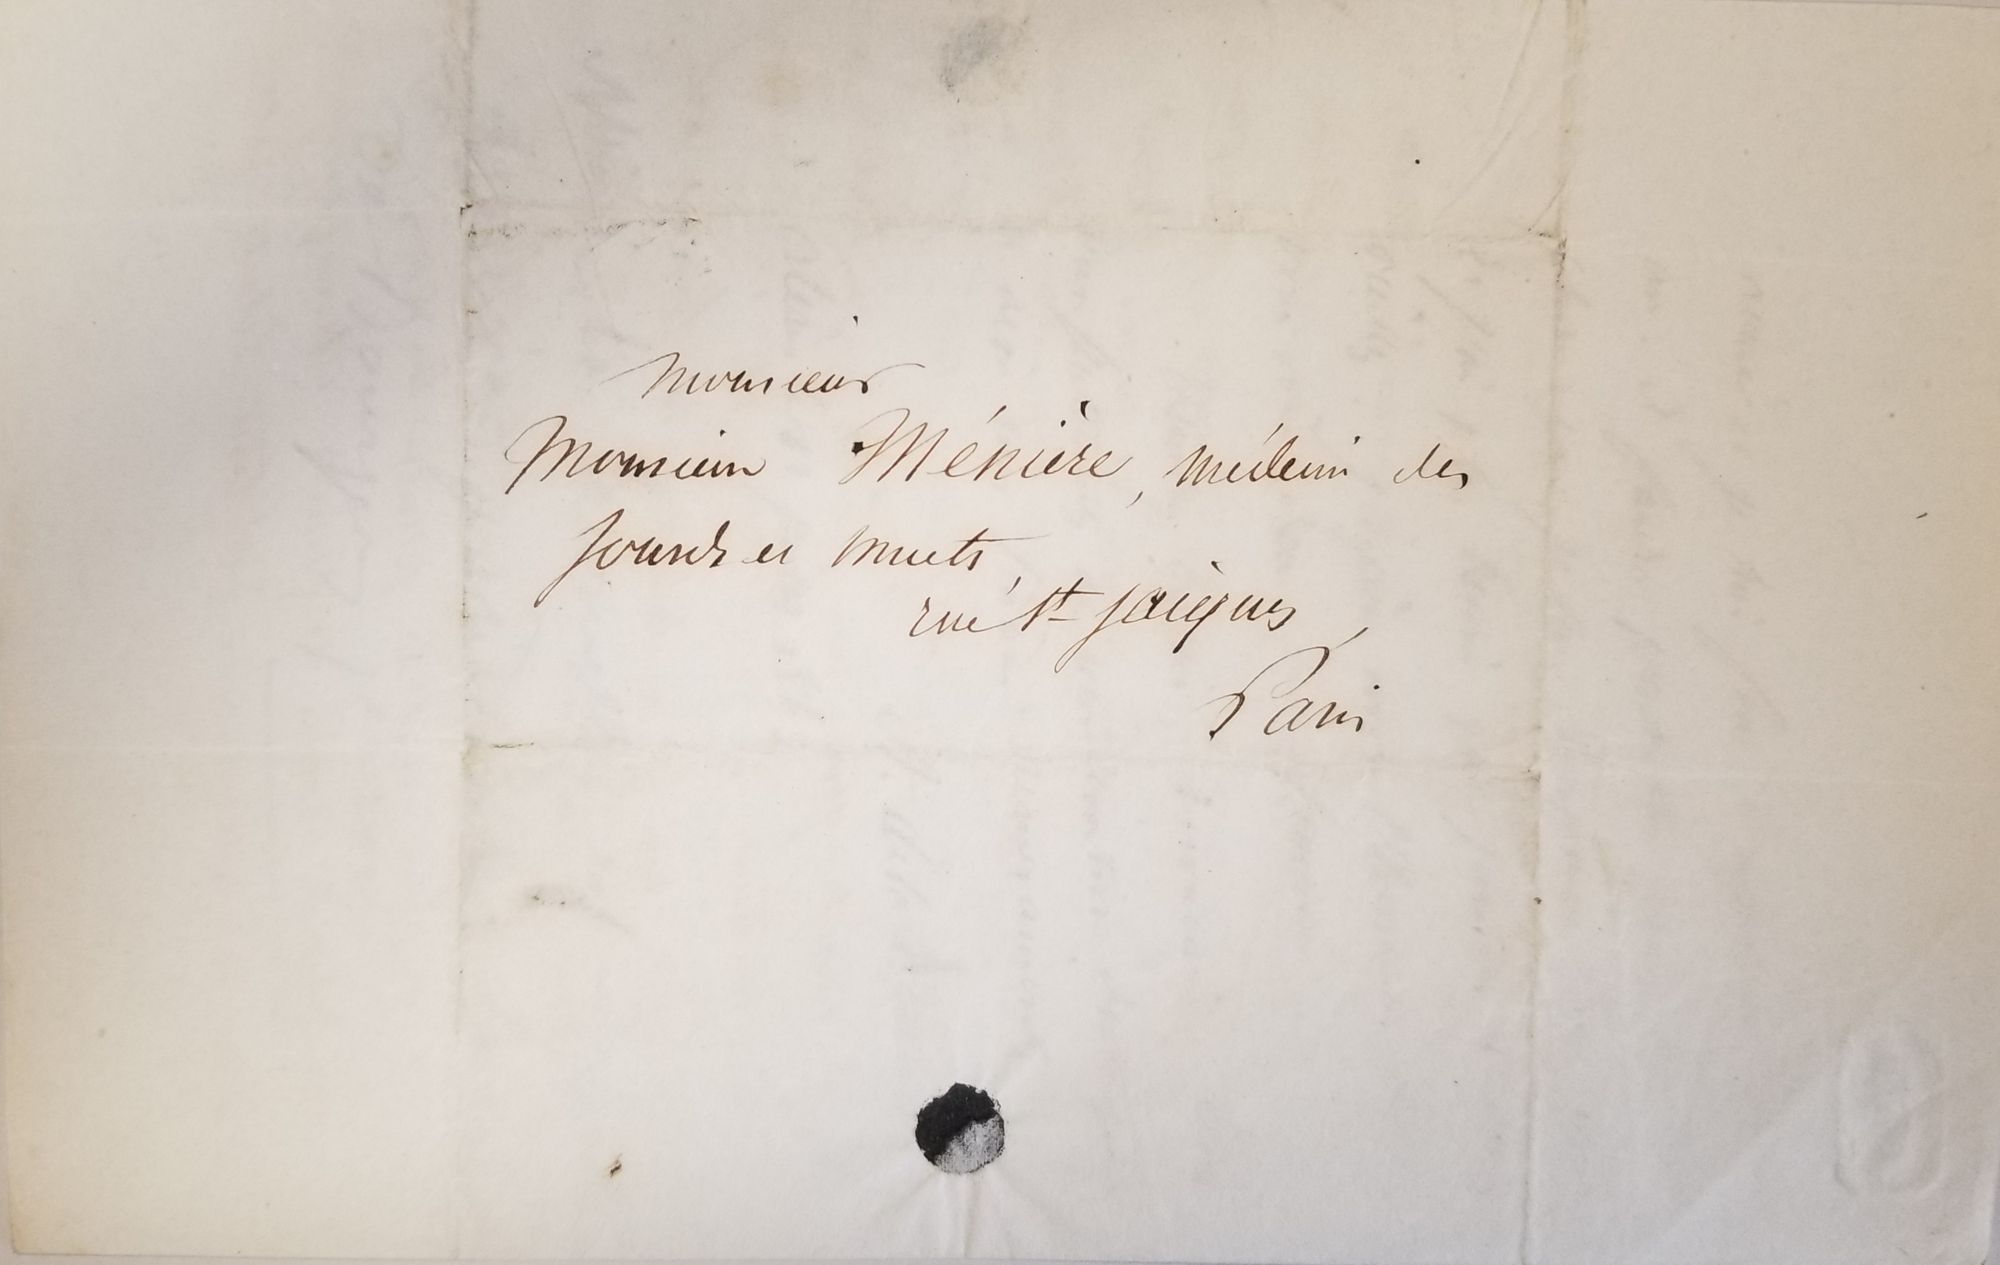 Monsieur
Monsieur Ménière, médecin des
sourds et muets,
rue St Jacques,
Paris